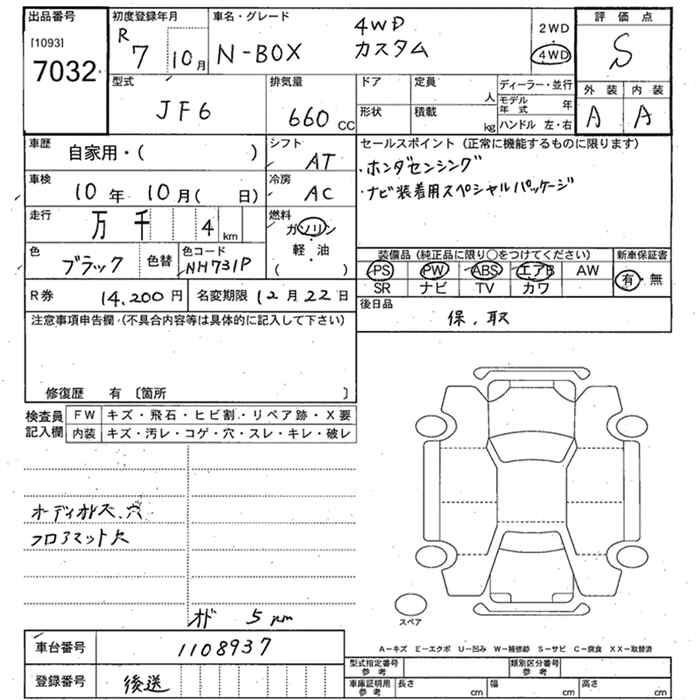 出品番号 初度登録年月 車名・グレード 評価点
[1093]
7032
R 7 10月
N-BOX 4WD カスタム
2WD
4WD
S
型式 JF6
排気量 660 CC
ドア 定員 人
形状 積載 kg
ディーラー・並行
モデル年式 年
ハンドル 左・右
外装 内装
A A
車歴 自家用・( )
シフト AT
セールスポイント(正常に機能するものに限ります)
・ホンダセンシング
・ナビ装着用スペシャルパッケージ
車検 10年 10月( 日)
冷房 AC
走行 万 千 4 km
燃料 ガソリン
軽・油
( )
色 ブラック 色替 色コード NH731P
装備品(純正品に限り〇をつけてください) 新車保証書
PS PW ABS エアB AW 有・無
SR ナビ TV カワ
R券 14,200円 名変期限 12月22日
後日品
保、取
注意事項申告欄・(不具合内容等は具体的に記入して下さい)
修復歴 有 〔箇所 〕
検査員記入欄
FW キズ・飛石・ヒビ割・リペア跡・X要
内装 キズ・汚レ・コゲ・穴・スレ・キレ・破レ
オーディオレス、穴
フロアマット欠
オド 5
スペア
車台番号 1108937
A−キズ E−エクボ U−凹み W−補修跡 S−サビ C−腐食 XX−取替済
登録番号 後送
型式指定番号 参考 類別区分番号 参考
車庫証明用 参考 長さ cm 幅 cm 高さ cm